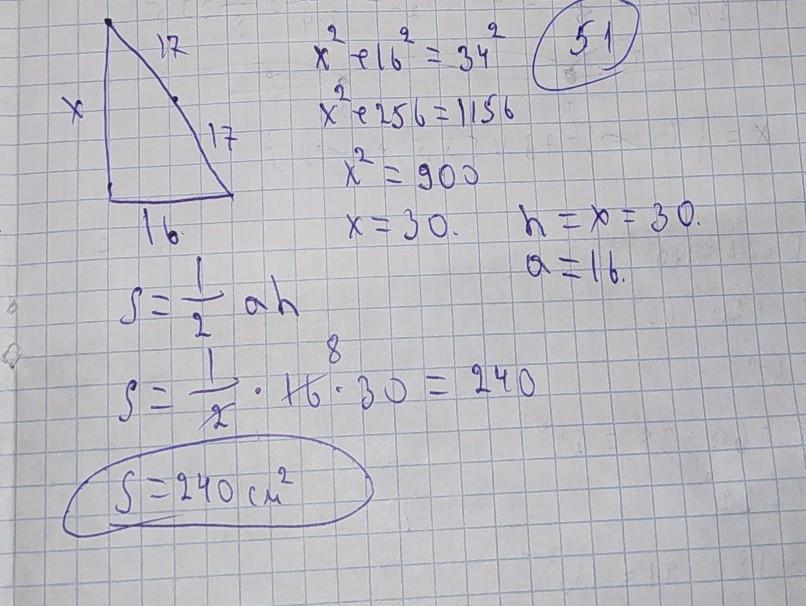 51
17
17
x
16
x² + 16² = 34²
x² + 256 = 1156
x² = 900
x = 30.
h = x = 30.
a = 16.
S = 1/2 ah
S = 1/2 · 16 · 30 = 240
8
S = 240 см²